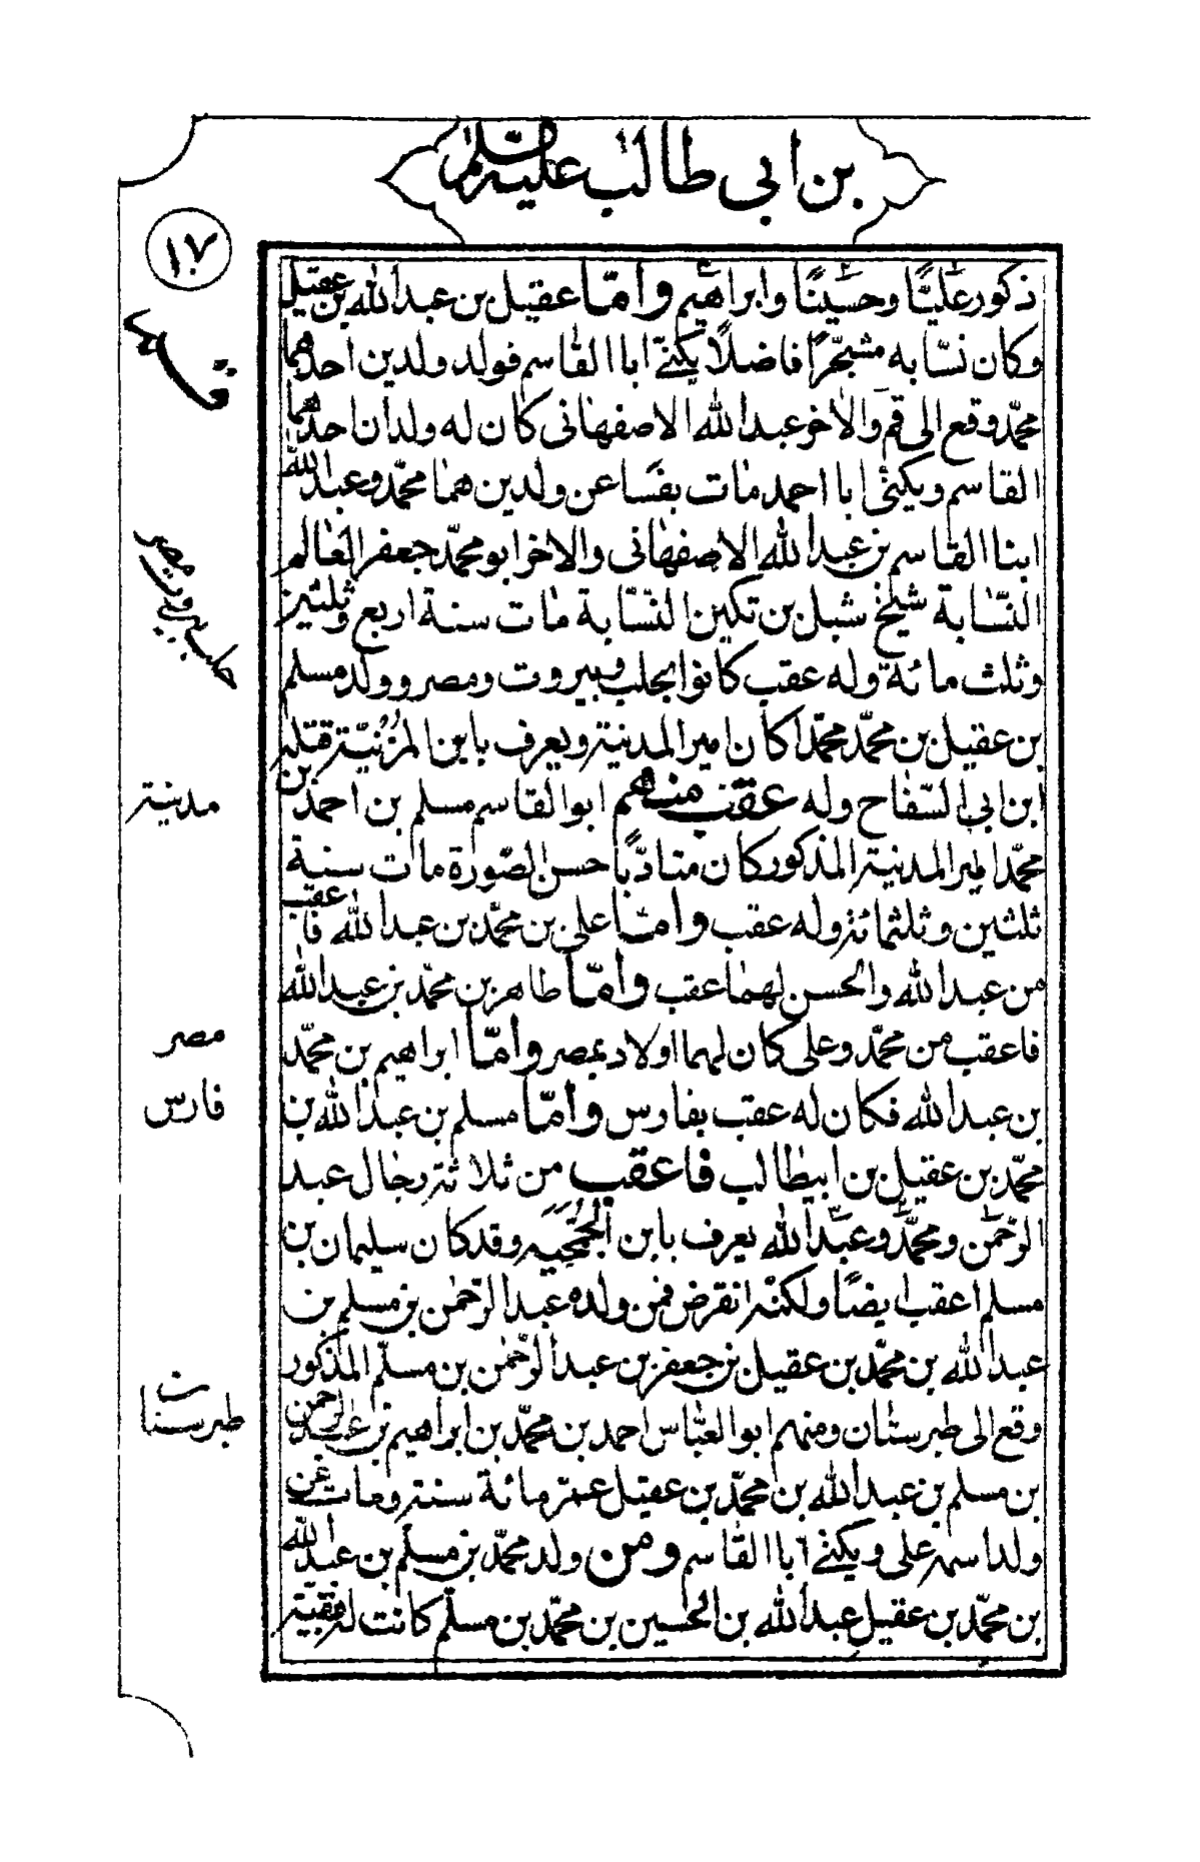 بن ابي طالب عليه السلام
١٠٧
ذكور عليّا وحسينًا وابراهيم وامّا عقيل بن عبد الله بن عقيل
وكان نسّابه مشجّرًا فاضلًا يكنى ابا القاسم فولد ولدين احدهما
محمّد وقع الى قم والاخر عبد الله الاصفهانى كان له ولدان احدهما
القاسم ويكنى ابا احمد مات بفسا عن ولدين هما محمّد وعبد الله
ابنا القاسم بن عبد الله الاصفهانى والاخر ابو محمّد جعفر العالم
النسّابة شيخ شبل بن تكين النسّابة مات سنة اربع وثلثين
وثلث مائة وله عقب كانوا بحلب وبيروت ومصر وولد مسلم
بن عقيل بن محمّد محمّدا كان امير المدينة ويعرف بابن المزنيّة قتله
ابن ابى السّفاح وله عقب منهم ابو القاسم مسلم بن احمد بن
محمّد امير المدينة المذكور كان متادّبًا حسن الصّورة مات سنة
ثلثين وثلثمائة وله عقب وامّا على بن محمّد بن عبد الله فاعقب
من عبد الله والحسن لهما عقب وامّا طاهر بن محمّد بن عبد الله
فاعقب من محمّد وعلى كان لهما اولاد بمصر وامّا ابراهيم بن محمّد
بن عبد الله فكان له عقب بفارس وامّا مسلم بن عبد الله بن
محمّد بن عقيل بن ابيطالب فاعقب من ثلاثة رجال عبد
الرّحمن ومحمّد وعبد الله يعرف بابن الجمحيه وقد كان سليمان بن
مسلم اعقب ايضًا ولكنه انقرض فمن ولده عبد الرّحمن بن مسلم بن
عبد الله بن محمّد بن عقيل بن جعفر بن عبد الرّحمن بن مسلم المذكور
وقع الى طبرستان ومنهم ابو العبّاس احمد بن محمّد بن ابراهيم بن عبد الرحمن
بن مسلم بن عبد الله بن محمّد بن عقيل عمّر مائة سنة ومات عن
ولد اسمه على ويكنى ابا القاسم ومن ولد محمّد بن مسلم بن عبد الله
بن محمّد بن عقيل عبد الله بن الحسين بن محمّد بن مسلم كانت له بقية
حلب بيروت مصر
مدينة
مصر
فارس
طبرستان